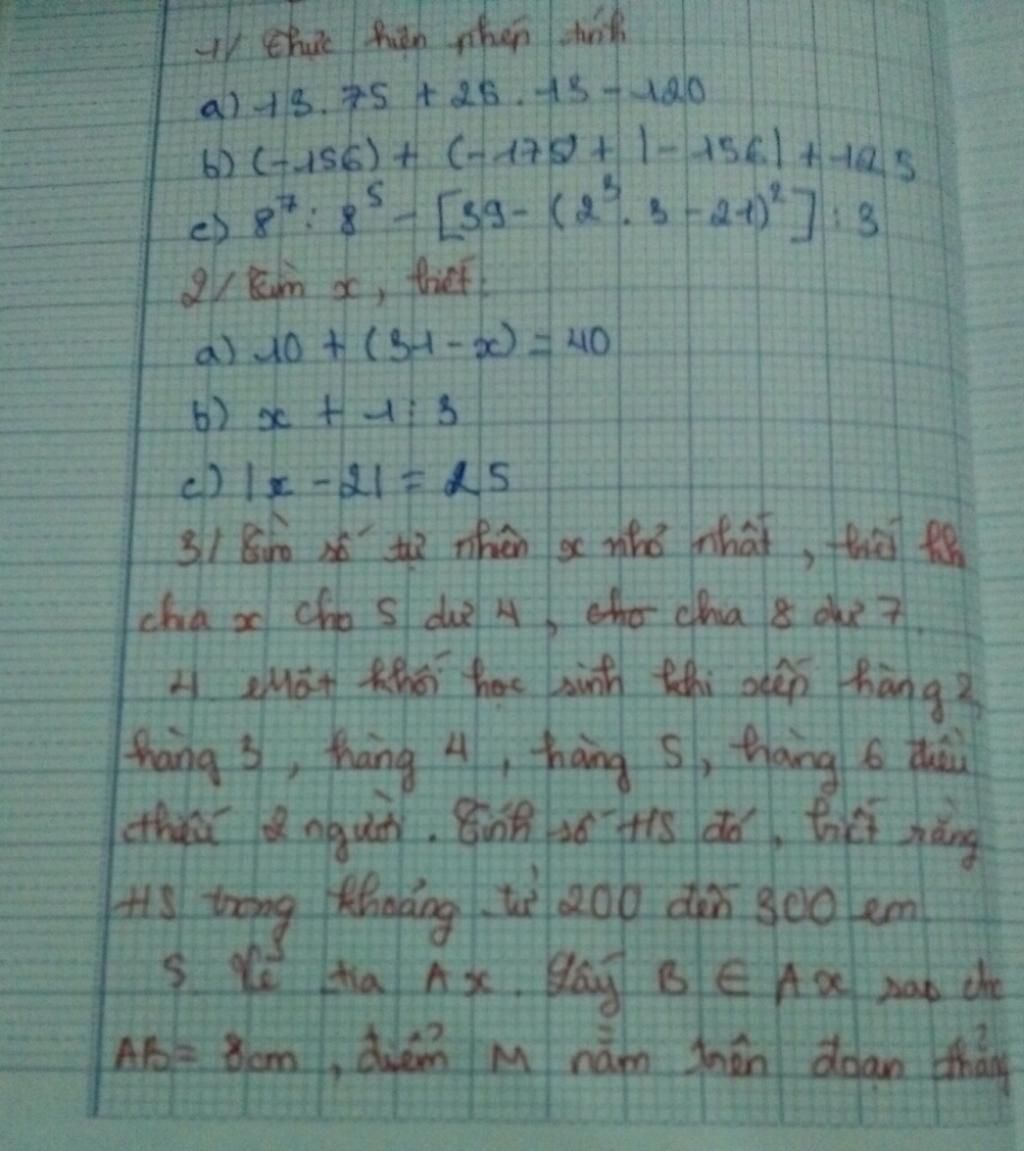 1/ Thực hiện phép tính
a) 13.75 + 25.13 - 120
b) (-156) + (-175) + |-156| + 125
c) 8⁷ : 8⁵ - [39 - (2³.3 - 21)²] : 3
2/ Tìm x, biết:
a) 10 + (31 - x) = 40
b) x + 1 : 3
c) |x - 2| = 25
3/ Tìm số tự nhiên x nhỏ nhất, biết kh
chia x cho 5 dư 4, cho chia 8 dư 7
4 Một khối học sinh khi xếp hàng 2,
hàng 3, hàng 4, hàng 5, hàng 6 đều
thiếu 2 người. Tính số HS đó, biết rằng
HS trong khoảng từ 200 đến 300 em
5. Vẽ tia Ax. Lấy B ∈ Ax sao cho
AB = 8cm, điểm M nằm trên đoạn thẳng